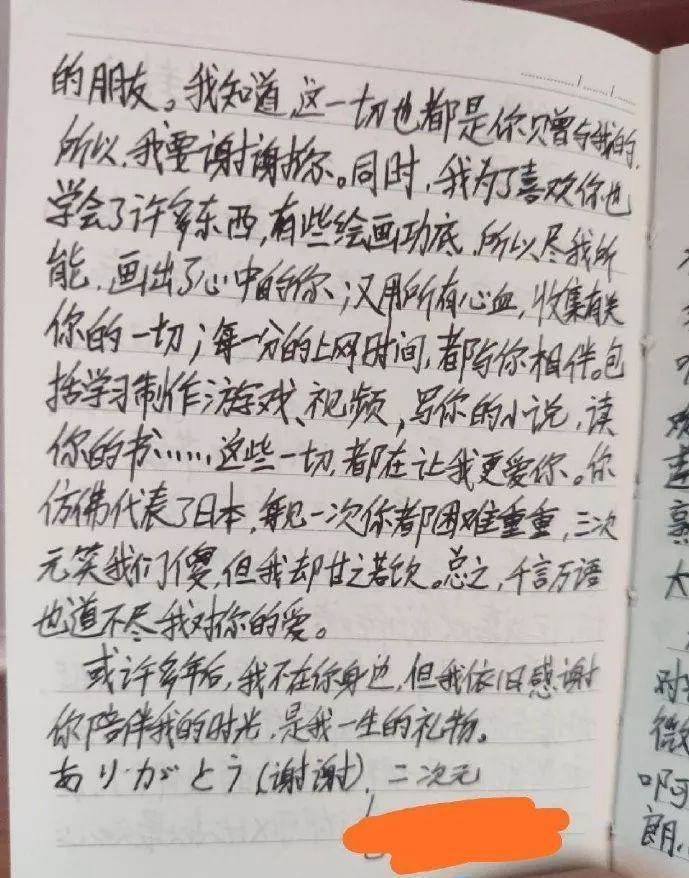 的朋友。我知道,这一切也都是你赠与我的,
所以,我要谢谢你。同时,我为了喜欢你也
学会了许多东西,有些绘画功底,所以尽我所
能,画出了心中的你;又用所有心血,收集有关
你的一切;每一分的上网时间,都与你相伴。包
括学习制作游戏、视频,写你的小说,读
你的书……,这些一切,都在让我更爱你。你
仿佛代表了日本,每见一次你都困难重重,三次
元笑我们傻,但我却甘之若饮。总之,千言万语
也道不尽我对你的爱。
或许多年后,我不在你身边,但我依旧感谢
你陪伴我的时光,是我一生的礼物。
ありがとう(谢谢),二次元
大
对
微
啊
朗,